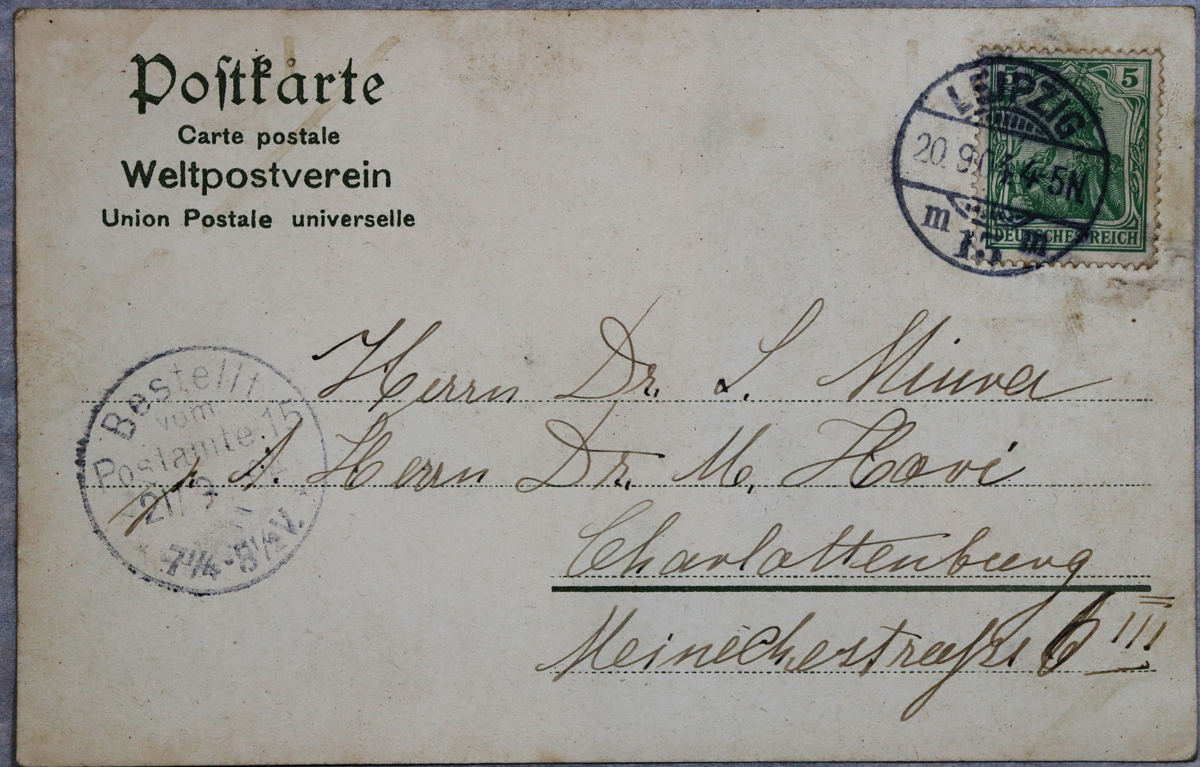 Poſtkarte
Carte postale
Weltpostverein
Union Postale universelle
5 5
LEIPZIG
20. 9. 04. 4-5N
m 13 m
DEUTSCHES REICH
Herrn Dr. S. Miura
p. A. Herrn Dr. M. Hori
Charlottenburg
Meineckestraſse 6 III
Bestellt
vom
Postamte 15
21/9
7¼-8½V.